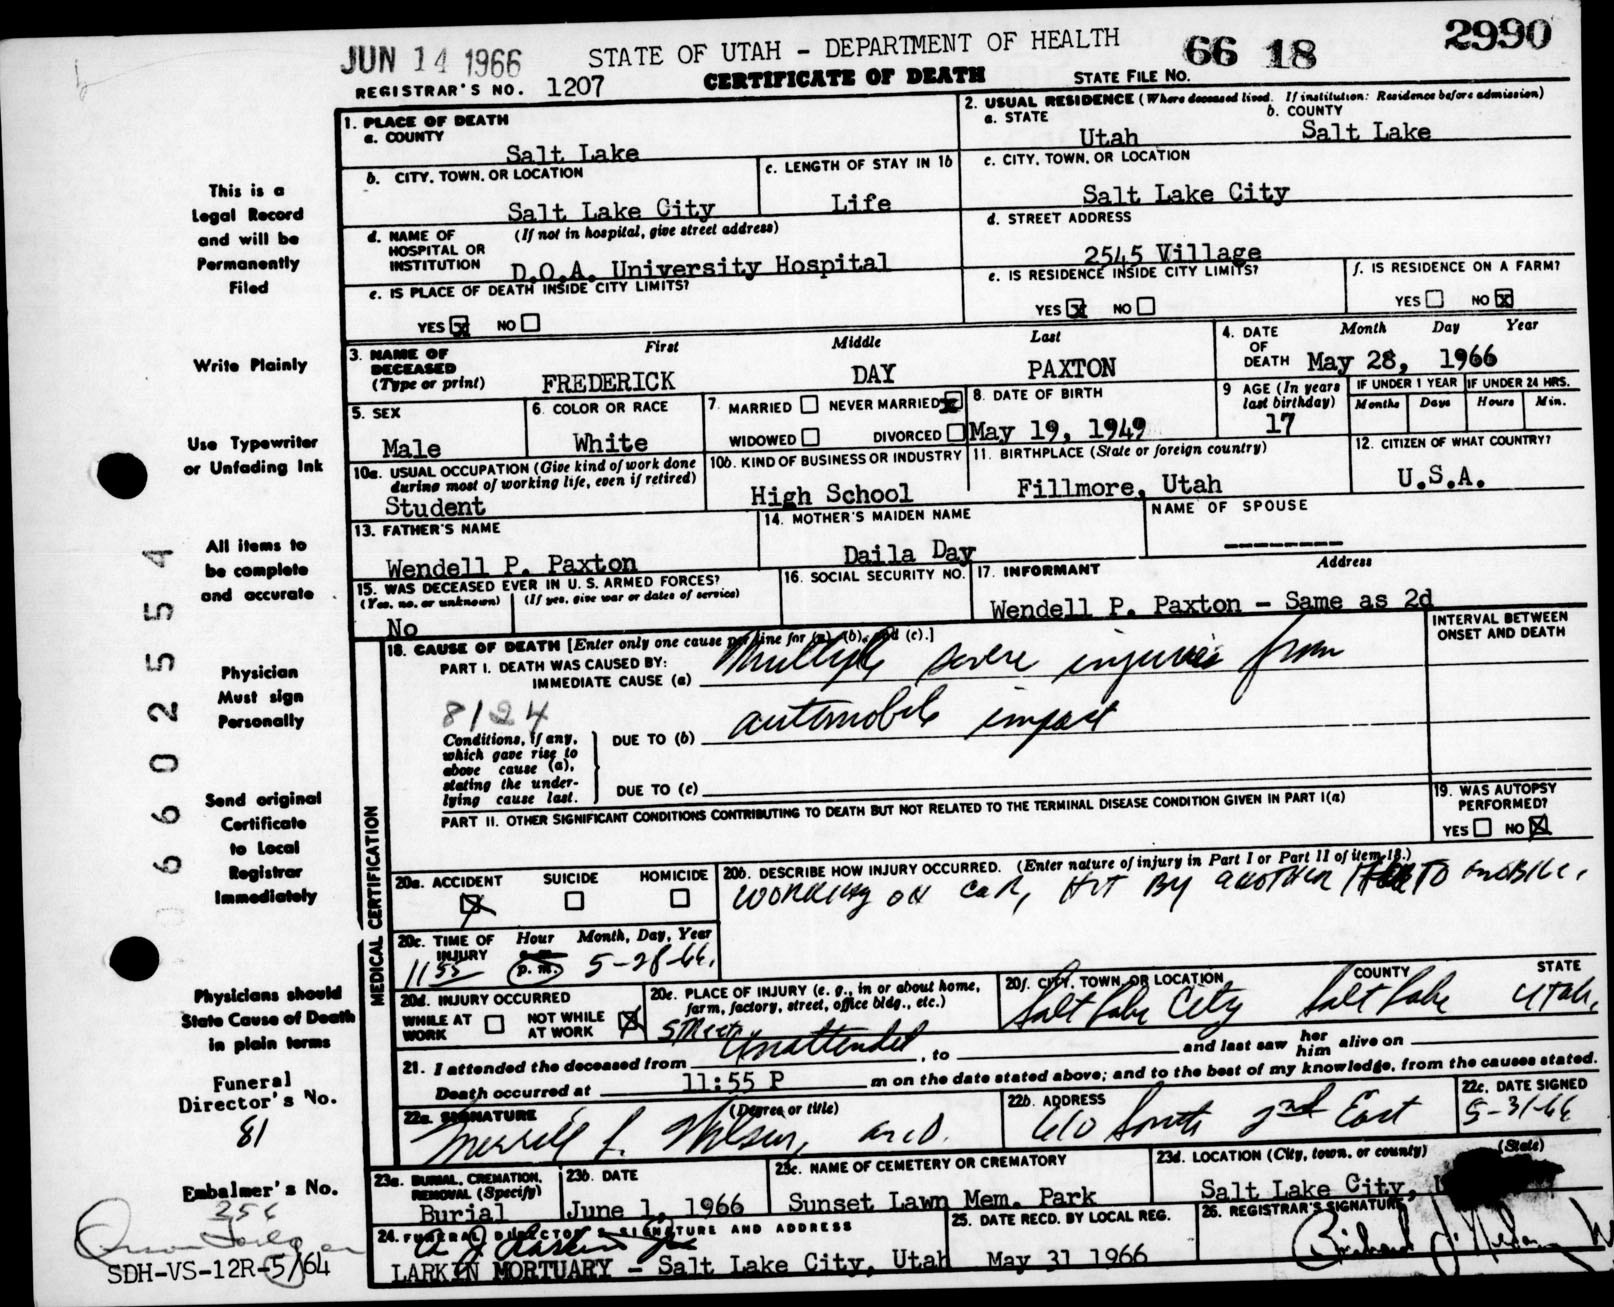 JUN 14 1966
STATE OF UTAH - DEPARTMENT OF HEALTH
66 18
2990
REGISTRAR'S NO. 1207
CERTIFICATE OF DEATH
STATE FILE NO.
This is a
Legal Record
and will be
Permanently
Filed
Write Plainly
Use Typewriter
or Unfading Ink
All items to
be complete
and accurate
Physician
Must sign
Personally
Send original
Certificate
to Local
Registrar
Immediately
Physicians should
State Cause of Death
in plain terms
Funeral
Director's No.
81
Embalmer's No.
256
SDH-VS-12R-5/64
660 2554
1. PLACE OF DEATH
a. COUNTY
Salt Lake
b. CITY, TOWN, OR LOCATION
Salt Lake City
c. LENGTH OF STAY IN 1b
Life
d. NAME OF HOSPITAL OR INSTITUTION (If not in hospital, give street address)
D.O.A. University Hospital
e. IS PLACE OF DEATH INSIDE CITY LIMITS?
YES X NO
2. USUAL RESIDENCE (Where deceased lived. If institution: Residence before admission)
a. STATE
Utah
b. COUNTY
Salt Lake
c. CITY, TOWN, OR LOCATION
Salt Lake City
d. STREET ADDRESS
2545 Village
e. IS RESIDENCE INSIDE CITY LIMITS?
YES X NO
f. IS RESIDENCE ON A FARM?
YES NO X
3. NAME OF DECEASED (Type or print)
First Middle Last
FREDERICK DAY PAXTON
4. DATE OF DEATH Month Day Year
May 28, 1966
5. SEX
Male
6. COLOR OR RACE
White
7. MARRIED NEVER MARRIED X
WIDOWED DIVORCED
8. DATE OF BIRTH
May 19, 1949
9 AGE (In years last birthday)
17
IF UNDER 1 YEAR
Months Days
IF UNDER 24 HRS.
Hours Min.
10a. USUAL OCCUPATION (Give kind of work done during most of working life, even if retired)
Student
10b. KIND OF BUSINESS OR INDUSTRY
High School
11. BIRTHPLACE (State or foreign country)
Fillmore, Utah
12. CITIZEN OF WHAT COUNTRY?
U.S.A.
13. FATHER'S NAME
Wendell P. Paxton
14. MOTHER'S MAIDEN NAME
Daila Day
NAME OF SPOUSE
-------
15. WAS DECEASED EVER IN U. S. ARMED FORCES?
(Yes, no, or unknown) (If yes, give war or dates of service)
No
16. SOCIAL SECURITY NO.
17. INFORMANT Address
Wendell P. Paxton - Same as 2d
MEDICAL CERTIFICATION
18. CAUSE OF DEATH [Enter only one cause per line for (a), (b), and (c).]
PART I. DEATH WAS CAUSED BY:
IMMEDIATE CAUSE (a) Multiple severe injuries from
8124
Conditions, if any, which gave rise to above cause (a), stating the underlying cause last.
DUE TO (b) automobile impact
DUE TO (c)
INTERVAL BETWEEN ONSET AND DEATH
PART II. OTHER SIGNIFICANT CONDITIONS CONTRIBUTING TO DEATH BUT NOT RELATED TO THE TERMINAL DISEASE CONDITION GIVEN IN PART I(a)
19. WAS AUTOPSY PERFORMED?
YES NO X
20a. ACCIDENT SUICIDE HOMICIDE
X
20b. DESCRIBE HOW INJURY OCCURRED. (Enter nature of injury in Part I or Part II of item 18.)
WORKING ON CAR, HIT BY ANOTHER AUTO MOBILE.
20c. TIME OF INJURY Hour Month, Day, Year
11 55 p. m. 5-28-66.
20d. INJURY OCCURRED
WHILE AT WORK NOT WHILE AT WORK X
20e. PLACE OF INJURY (e. g., in or about home, farm, factory, street, office bldg., etc.)
Street
20f. CITY, TOWN, OR LOCATION COUNTY STATE
Salt Lake City Salt Lake Utah.
21. I attended the deceased from Unattended, to and last saw her him alive on
Death occurred at 11:55 P m on the date stated above; and to the best of my knowledge, from the causes stated.
22a. SIGNATURE (Degree or title)
Merrill L. Wilson, M.D.
22b. ADDRESS
610 South 2nd East
22c. DATE SIGNED
5-31-66
23a. BURIAL, CREMATION, REMOVAL (Specify)
Burial
23b. DATE
June 1, 1966
23c. NAME OF CEMETERY OR CREMATORY
Sunset Lawn Mem. Park
23d. LOCATION (City, town, or county) (State)
Salt Lake City,
24. FUNERAL DIRECTOR'S SIGNATURE AND ADDRESS
LARKIN MORTUARY - Salt Lake City, Utah
25. DATE RECD. BY LOCAL REG.
May 31 1966
26. REGISTRAR'S SIGNATURE